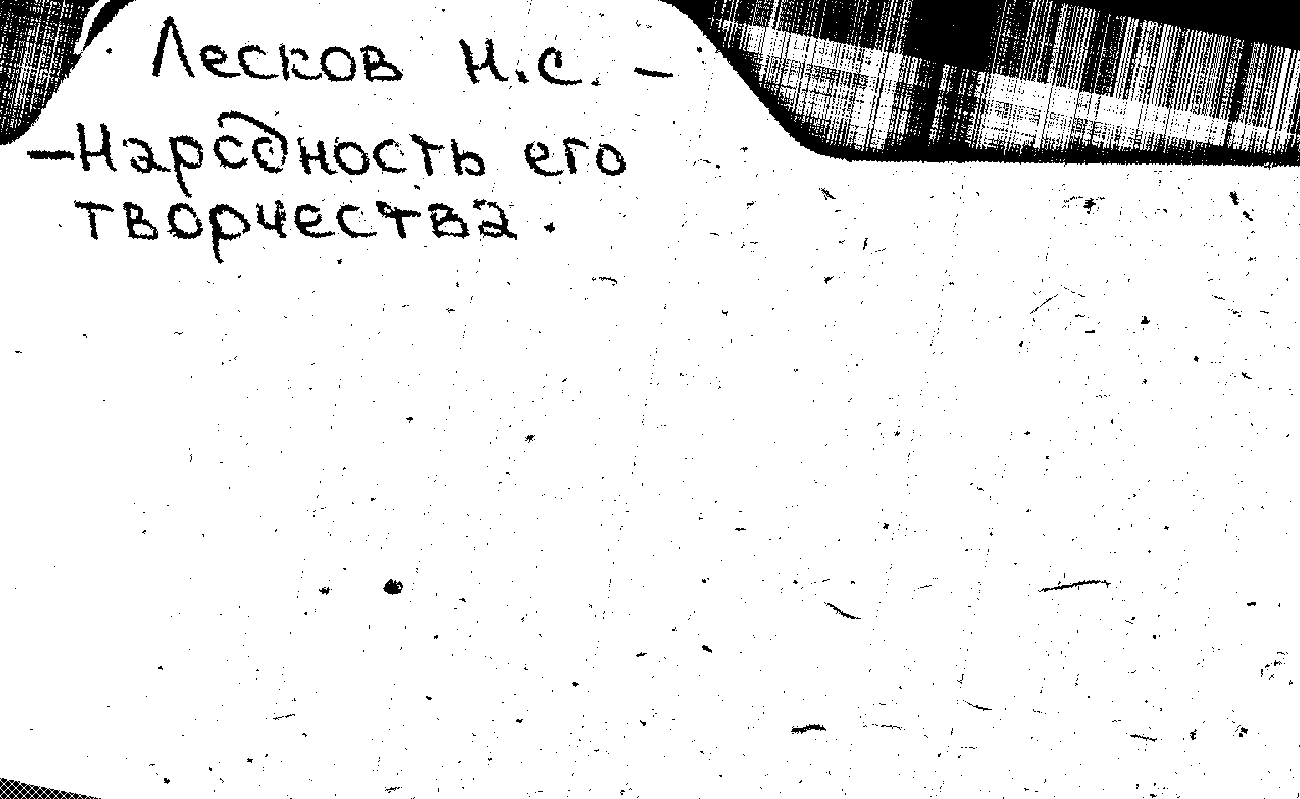 Лесков Н.С. –
– Народность его
творчества.